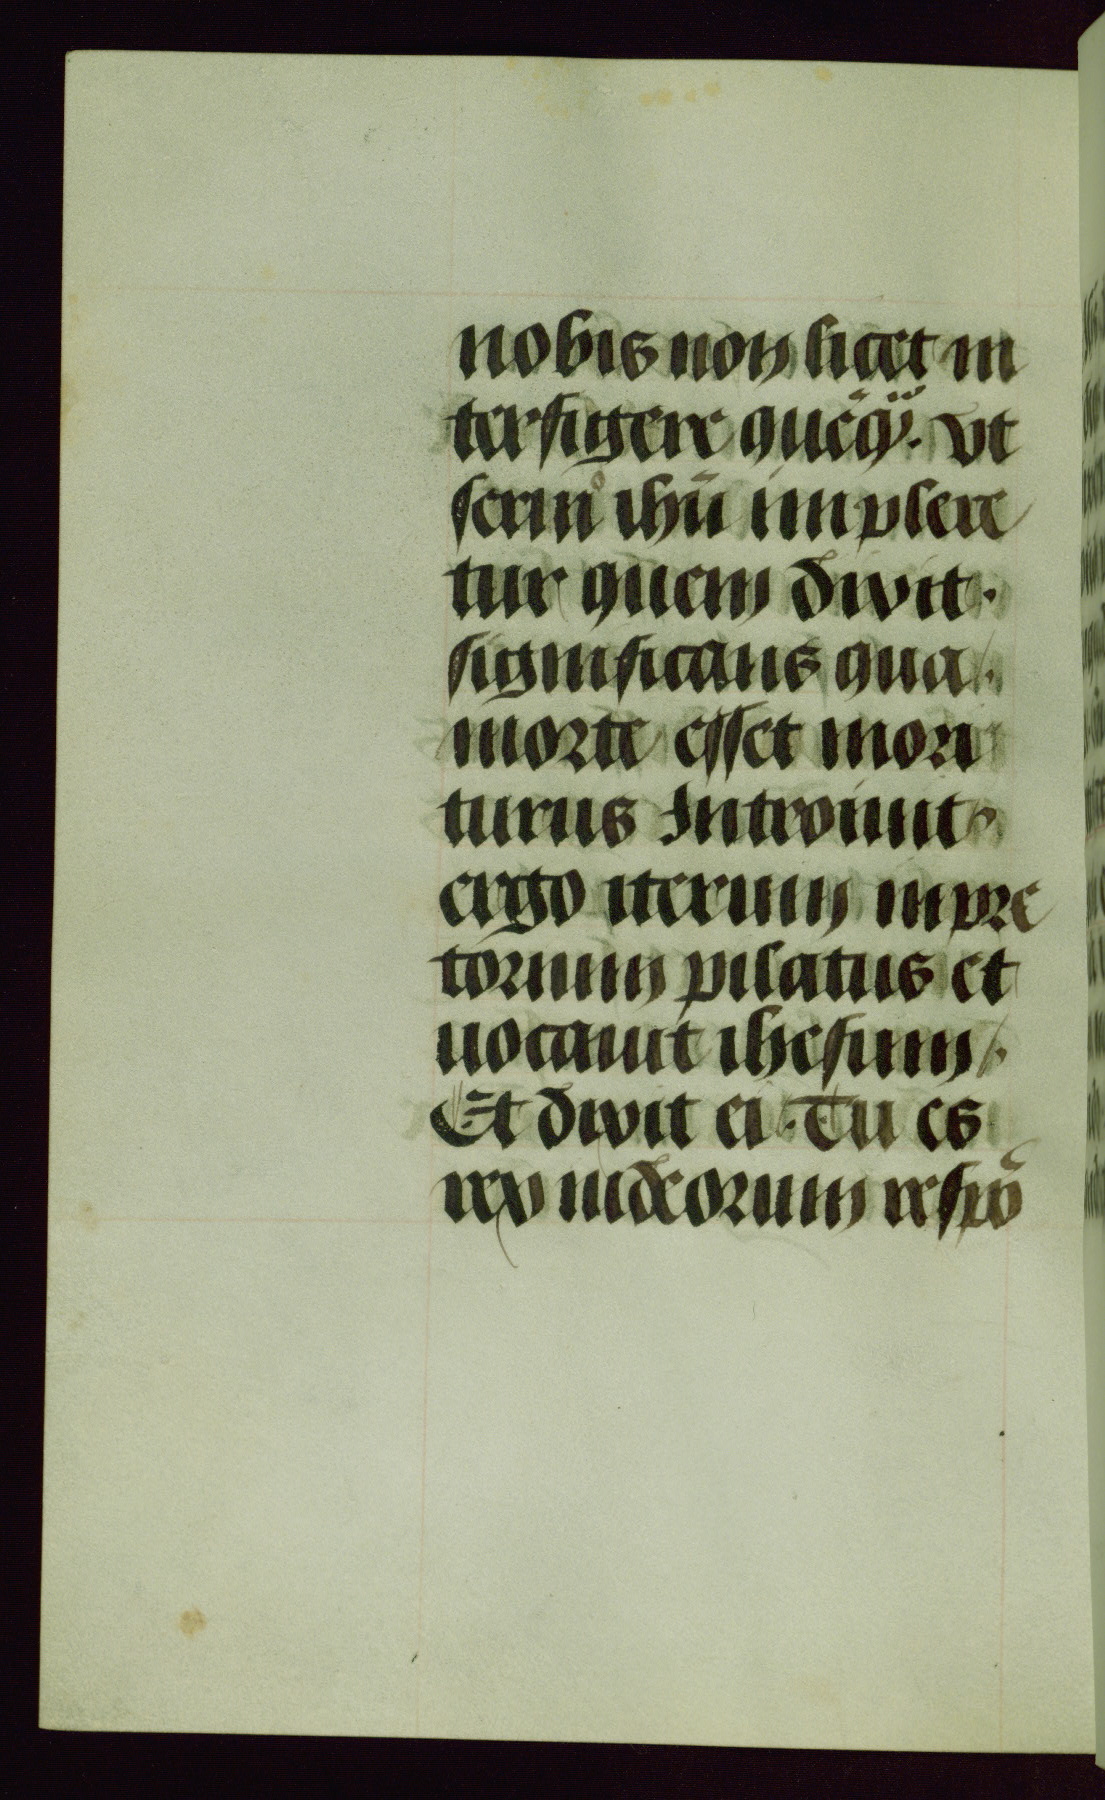 nobis non licet in
terficere quēq̄. vt
sermº ihū implere
tur quem dixit.
significans qua
morte esset mori
turus Introiuit
ergo iterum in pre
torium pilatus et
uocauit ihesum
Et dixit ei. Tu es
rex iudeorum respō